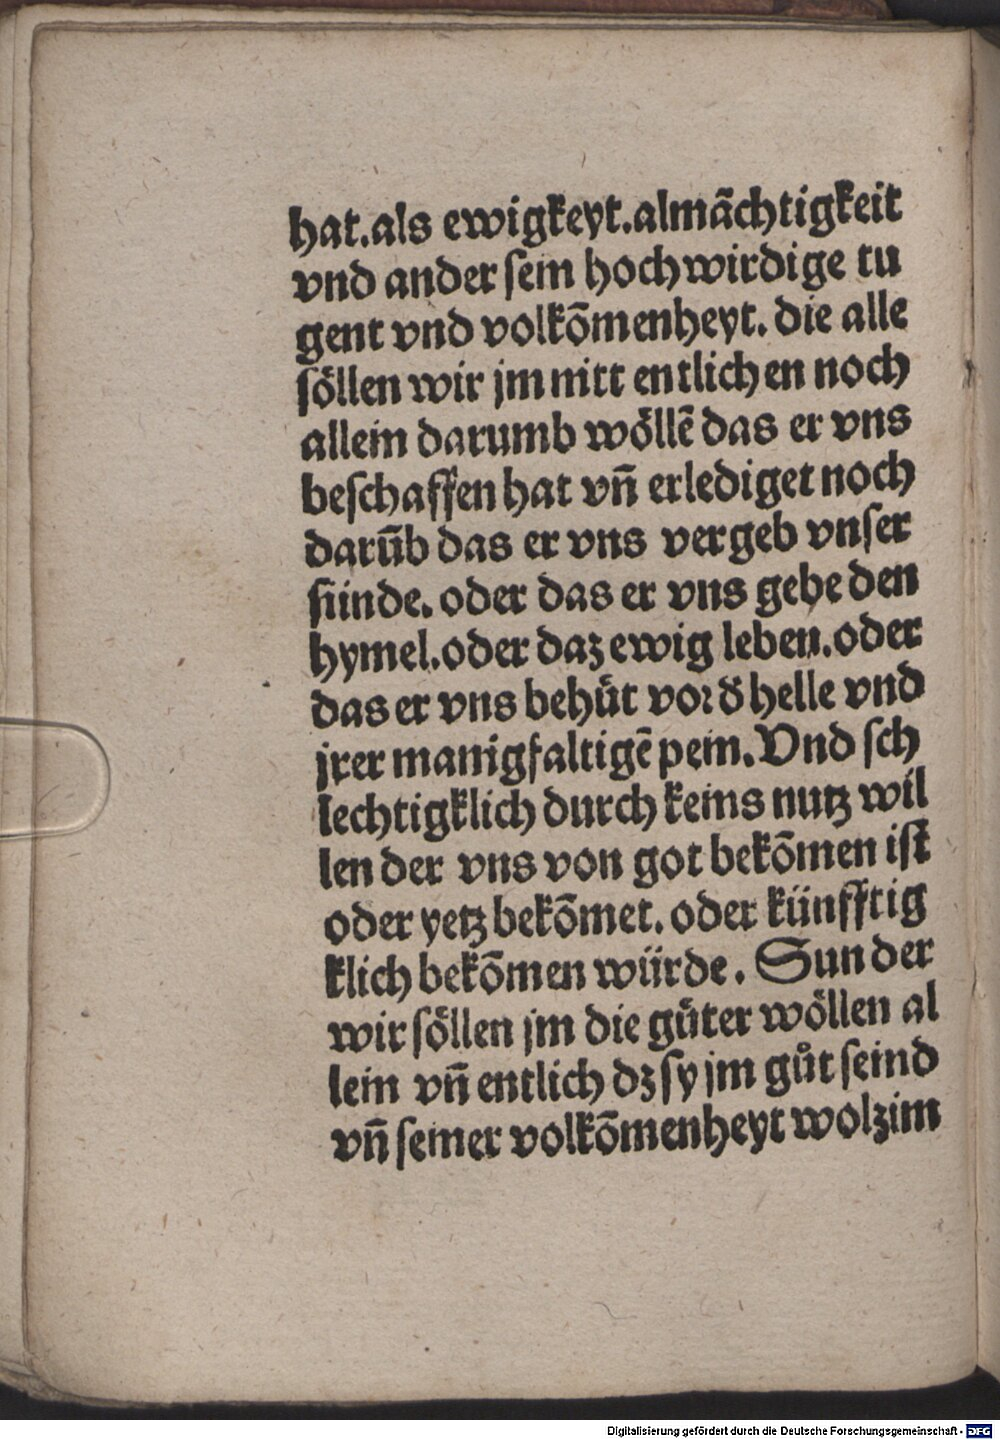 hat.als ewigkeyt.almächtigkeit
vnd ander sein hochwirdige tu
gent vnd volkōmenheyt. die alle
söllen wir jm nitt entlichen noch
allein darumb wöllē das er vns
beschaffen hat vn̄ erlediget noch
darūb das er vns vergeb vnser
sünde. oder das er vns gebe den
hymel.oder daz ewig leben.oder
das er vns behüt vor d̄ helle vnd
jrer manigfaltigē pein.Vnd sch
lechtigklich durch keins nutz wil
len der vns von got bekōmen ist
oder yetz bekōmet. oder künfftig
klich bekōmen würde. Sunder
wir söllen jm die güter wöllen al
lein vn̄ entlich dz sy jm gůt seind
vn̄ seiner volkōmenheyt wolzim
Digitalisierung gefördert durch die Deutsche Forschungsgemeinschaft - DFG